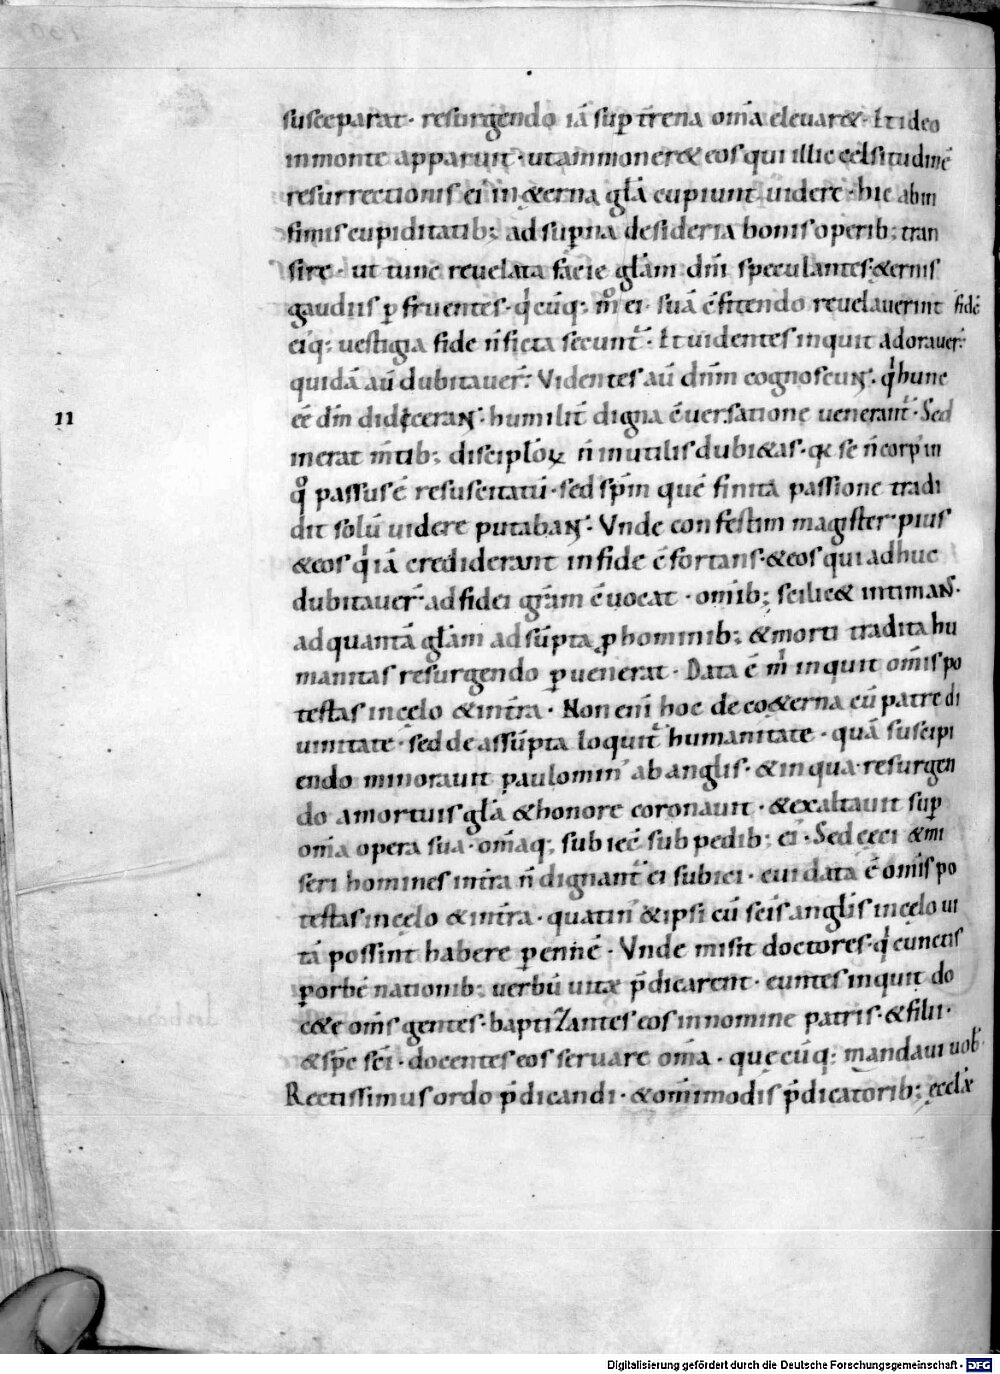 susceparat· resurgendo iā suꝑ tr̄rena om̄a eleuar&· Et ideo
inmonte apparuit· utammoner& eos qui illic cęlsitudinē
resurrectionis ei᾽ in &erna gl̄a cupiunt uidere· hic abin
fimis cupiditatib; ad suꝑna desideria bonis operib; tran
sire· ut tunc reuelata facie gl̄am dn̄i speculantes· &ernis
gaudiis ꝑfruentes· qͥcūq; mͦ ei᾽ suā c̄fitendo reuelauerint fidē
ei᾽q; uestigia fide n̄ficta secunt᷑· Et uidentes inquit adorauer̄
quidā aū dubitauer̄· Videntes aū dnm̄ cognoscuɴᵗ· qͥ hunc
ēē dm̄ didęceraɴᵗ· humilit̄ digna c̄uersatione uenerant᷑· Sed
inerat m̄tib; discipl̄oꝝ n̄ inutilis dubi&as· qꝛ se n̄ corp᾽ in
qͦ passus ē resuscitatū· sed sp̄m quē finita passione tradi
dit solū uidere putabaɴᵗ· Vnde confestim magister pius
& eos qͥ iā crediderant in fide c̄fortans· & eos qui adhuc
dubitauer̄ ad fidei gr̄am c̄uocat· omīb; scilic& intimaɴˢ·
ad quantā gl̄am adsūpta ꝓ hominib; & morti tradita hu
manitas resurgendo ꝑuenerat· Data ē mͥ inquit om̄is po
testas incęlo & int̄ra· Non enī hoc de co&erna cū patre di
uinitate· sed de assūpta loquit᷑ humanitate· quā suscipi
endo minorauit paulomin᾽ ab angl̄is· & in qua resurgen
do amortuis gl̄a & honore coronauit· & exaltauit suꝑ
om̄ia opera sua· om̄aq; subiec̄ sub pedib; ei᾽· Sed cęci & mi
seri homines int̄ra n̄ dignant᷑ ei subici· cui data ē om̄is po
testas incęlo & int̄ra· quatin᾽ & ipsi cū sc̄is angl̄is incęlo ui
tā possint habere ꝑennē· Vnde misit doctores· qͥ cunctis
ꝑ orbē nationib; uerbū uitæ p̄dicarent· euntes inquit do
c&e om̄s gentes· baptizantes eos innomine patris· & filii·
& sp̄c sc̄i· docentes eos seruare om̄a· quęcūq; mandaui uob᾽
Rectissimus ordo p̄dicandi· & om̄imodis p̄dicatorib; ęccl̄æ
11
Digitalisierung gefördert durch die Deutsche Forschungsgemeinschaft - DFG